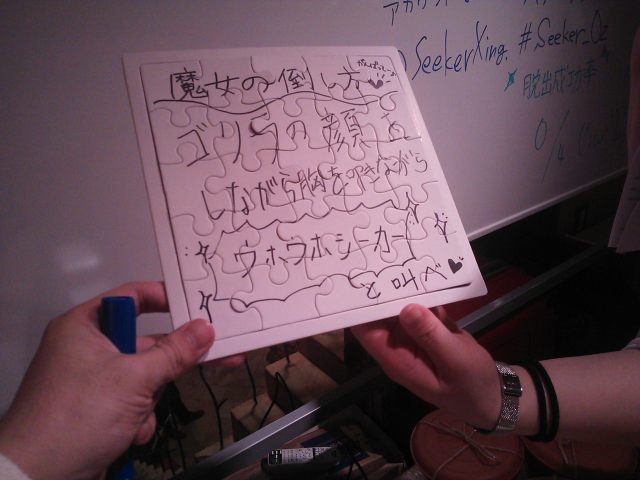 SeekerXing. #Seeker_Oz
脱出成功率
0/4
魔女の倒し方
がんばって〜
ゴリラの顔を
しながら胸を叩きながら
ウホウホシーカー
と叫べ